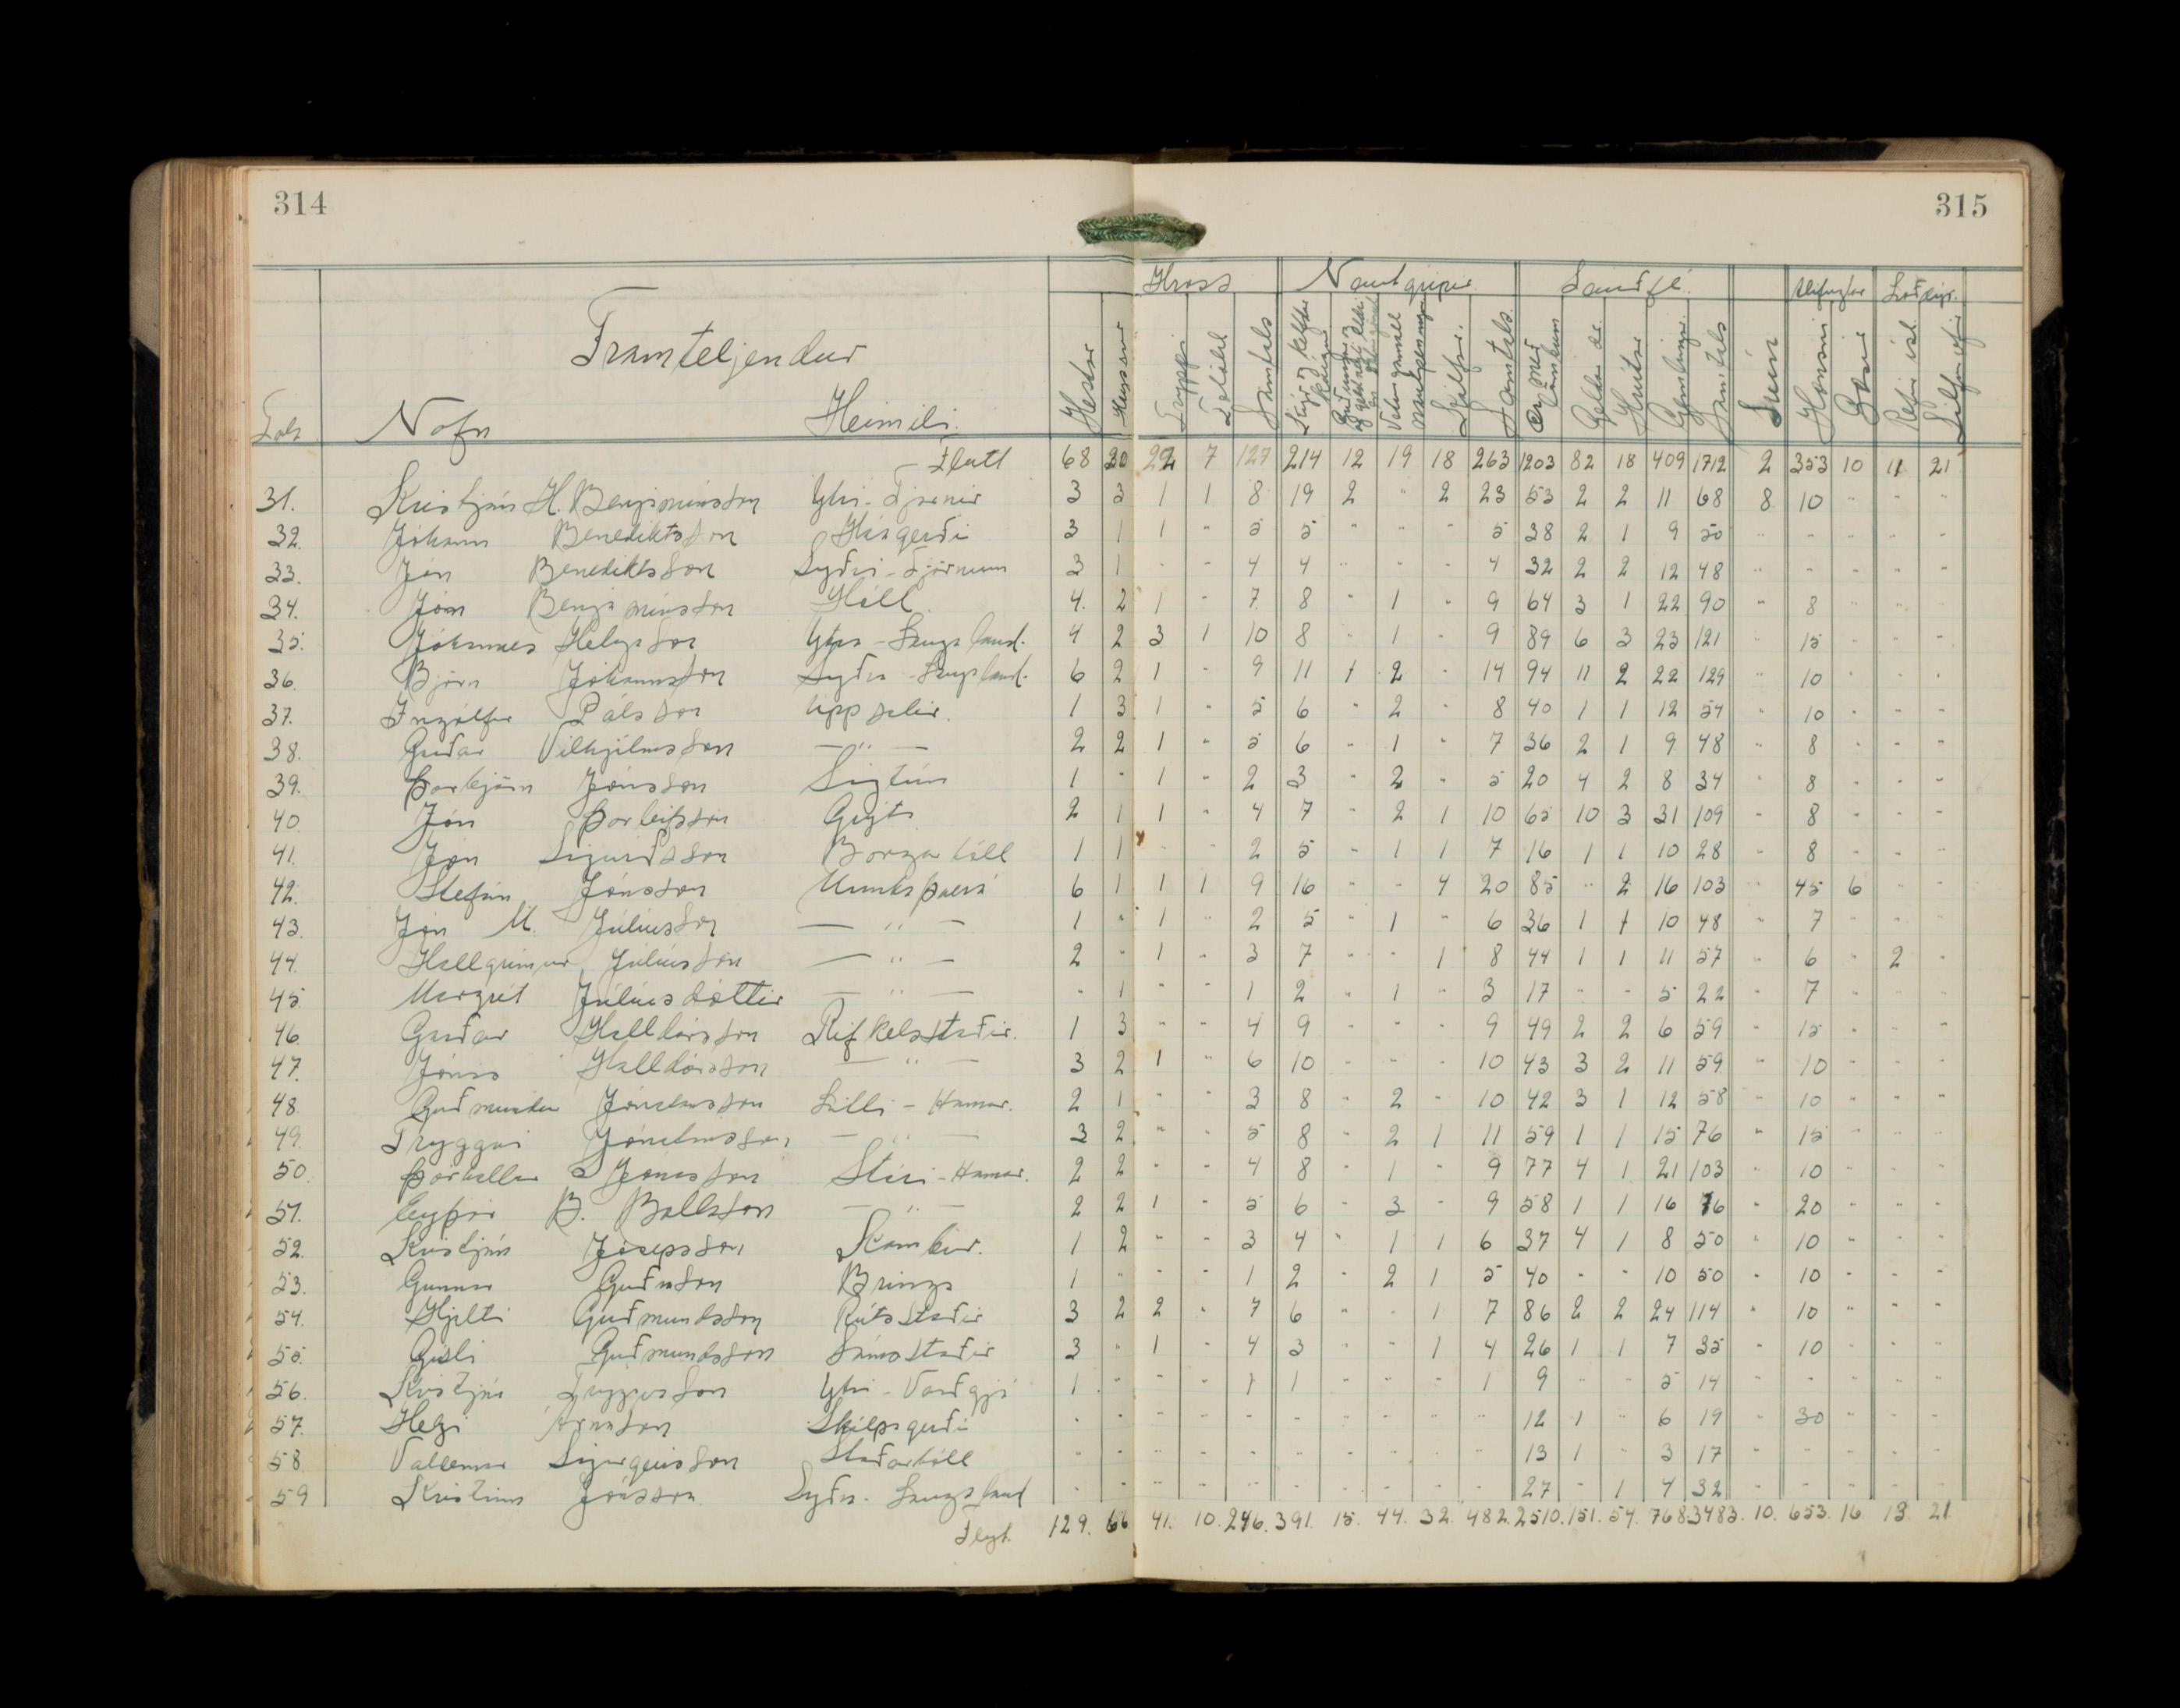 314
315
Hross Nautgripir Sauðfé. Alifuglar Loðdýr.
Framteljendur
Tala Nöfn Heimili. Hestar Hryssur Tryppi Folöld Samtals Kálfar. Samtals. Ær með lömbum Geldar ær. Hrútar Gemlingar. Samtals Svín Hænsni Refir Silfurrefir
Flutt 68 30 22 7 127 214 12 19 18 263 1203 82 18 409 1712 2 353 10 11 21
31. Kristján H. Benjamínsson Ytri-Tjarnir 3 3 1 1 8 19 2 " 2 23 53 2 2 11 68 8 10 " " "
32. Jóhann Benediktsson Háagerði 3 1 1 " 5 5 " " " 5 38 2 1 9 50 " " " " "
33. Jón Benediktsson Syðri-Tjörnum 3 1 " " 4 4 " " " 4 32 2 2 12 48 " " " " "
34. Jón Benjamínsson Hóll 4. 2 1 " 7. 8 " 1 " 9 64 3 1 22 90 " 8 " " "
35. Jóhannes Helgason Ytra-Laugaland. 4 2 3 1 10 8 " 1 " 9 89 6 3 23 121 " 15 " " "
36. Björn Jóhannsson Syðra-Laugaland. 6 2 1 " 9 11 1 2 " 14 94 11 2 22 129 " 10 " " "
37. Ingólfur Pálsson Uppsalir. 1 3 1 " 5 6 " 2 " 8 40 1 1 12 54 " 10 " " "
38. Garðar Vilhjálmsson — " — 2 2 1 " 5 6 " 1 " 7 36 2 1 9 48 " 8 " " "
39. Þorbjörn Jónsson Sigtún 1 " 1 " 2 3 " 2 " 5 20 4 2 8 34 " 8 " " "
40. Jón Þorleifsson Grýta 2 1 1 " 4 7 " 2 1 10 65 10 3 31 109 " 8 " " "
41. Jón Sigurðsson Borgarhóll 1 1 " " 2 5 " 1 1 7 16 1 1 10 28 " 8 " " "
42. Stefán Jónsson Munkaþverá 6 1 1 1 9 16 " " 4 20 85 " 2 16 103 " 45 6 " "
43. Jón M. Júlíusson — " — 1 " 1 " 2 5 " 1 " 6 36 1 1 10 48 " 7 " " "
44. Hallgrímur Júlíusson — " — 2 " 1 " 3 7 " " 1 8 44 1 1 11 57 " 6 " 2 "
45. Margrét Júlíusdóttir — " — " 1 " " 1 2 " 1 " 3 17 " " 5 22 " 7 " " "
46. Garðar Halldórsson Rifkelsstaðir. 1 3 " " 4 9 " " " 9 49 2 2 6 59 " 15 " " "
47. Jónas Halldórsson — " — 3 2 1 " 6 10 " " " 10 43 3 2 11 59 " 10 " " "
48. Guðmundur Jónatansson Litli-Hamar. 2 1 " " 3 8 " 2 " 10 42 3 1 12 58 " 10 " " "
49. Tryggvi Jónatansson — " — 3 2 " " 5 8 " 2 1 11 59 1 1 15 76 " 15 " " "
50. Þórhallur Jónasson Stóri-Hamar. 2 2 " " 4 8 " 1 " 9 77 4 1 21 103 " 10 " " "
51. Eyþór B. Ballason — " — 2 2 1 " 5 6 " 3 " 9 58 1 1 16 76 " 20 " " "
52. Kristján Jósepsson 1 2 " " 3 4 " 1 1 6 37 4 1 8 50 " 10 " " "
53. Gunnar Guðnason Bringa 1 " " " 1 2 " 2 1 5 40 " " 10 50 " 10 " " "
54. Hjalti Guðmundsson Rútsstaðir 3 2 2 " 7 6 " " 1 7 86 2 2 24 114 " 10 " " "
55. Gísli Guðmundsson Sámsstaðir 3 " 1 " 4 3 " " 1 4 26 1 1 7 35 " 10 " " "
56. Kristján Tryggvason Ytri-Varðgjá 1 " " " 1 1 " " " 1 9 " " 5 14 " " " " "
57. Helgi Árnason Skálpagerði " " " " " " " " " " 12 1 " 6 19 " 30 " " "
58. Valdemar Sigurgeirsson Staðarhóll " " " " " " " " " " 13 1 " 3 17 " " " " "
59 Kristinn Jónsson Syðra-Laugaland " " " " " " " " " " 27 " 1 4 32 " " " " "
Flyt. 129. 66 41. 10. 246. 391. 15. 44. 32. 482. 2510. 151. 54. 768. 3483. 10. 653. 16 13. 21